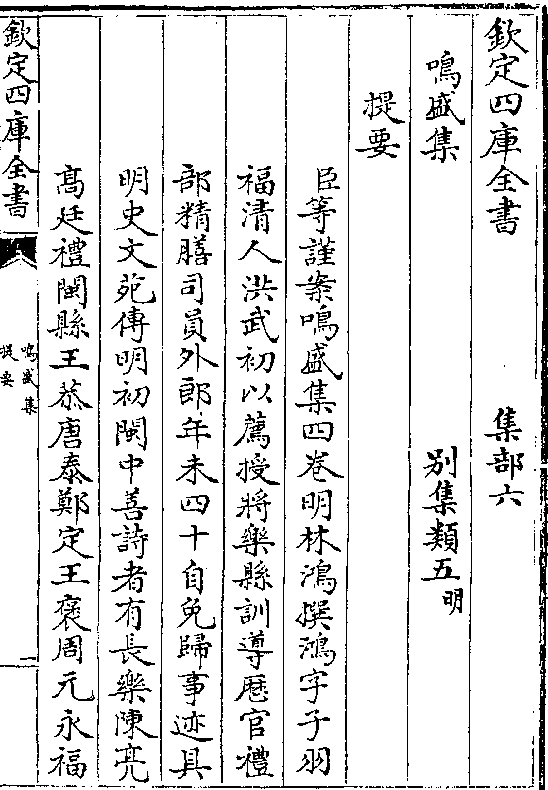 欽定四庫全書　集部六
鳴盛集　别集類五明
提要
臣等謹案鳴盛集四卷明林鴻撰鴻字子羽
福清人洪武初以薦授將樂縣訓導歴官禮
部精膳司員外郎年未四十自免歸事迹具
明史文苑傳明初閩中善詩者有長樂陳亮
髙廷禮閩縣王恭唐泰鄭定王褒周元永福
欽定四庫全書
鳴盛集
提要
一